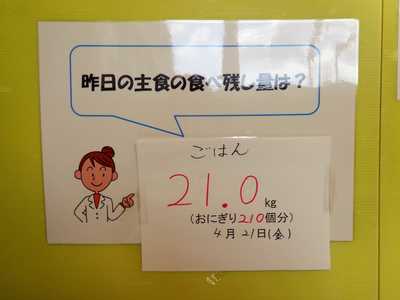 昨日の主食の食べ残し量は？
ごはん
21.0 kg
(おにぎり210個分)
4月21日(金)